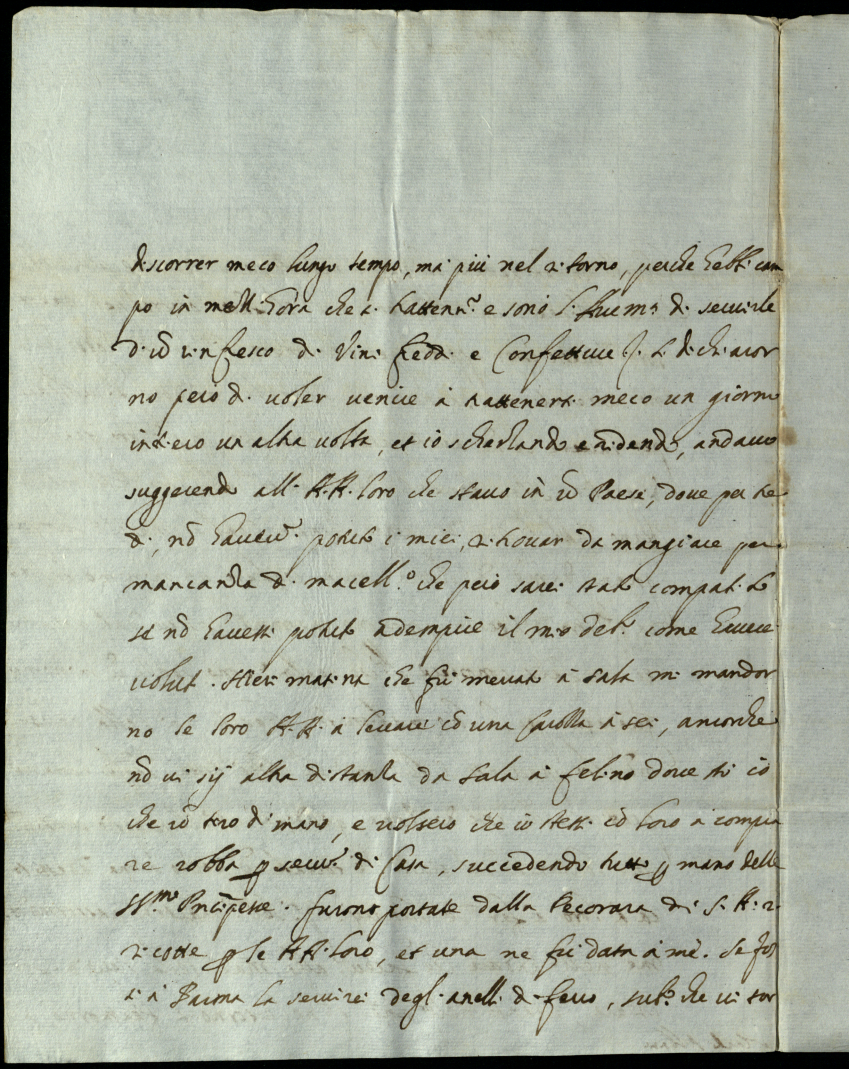 discorrer meco lungo tempo, ma più nel ritorno, perche hebbi cam
po in mezz'hora che si trattenn.º e sono di servirle
d'un rinfresco di Vini freddi e Confetture si dichiaror
no però di voler venire à trattenersi meco un giorno
intiero un altra volta, et io scherzando e ridendo, andavo
suggerendo all' A.A. loro che stavo in un Paese, dove per tre
dì, nõ potuto i miei, ritrovar da mangiare per
mancanza di macell.º che però sarei stato compatito
se nõ havessi potuto adempire il mio deb.º come havere
voluto. Hieri matina che fui à Sala mi mandor
no le loro A.A. à levare cõ una Carozza à sei, ancorche
nõ vi sij altra distanza da Sala à Felino dove stò io
che un tiro di mano, e volsero che io stessi cõ loro à compra
re robba p serv.º di Casa, succedendo tutto p mano delle
SS.me Principesse. furono portate dalla Pecorara di S. A. 2
ricotte p le AA. loro, et una ne fù data à mè. Se fos
si à Parma la servirei degl'anelli di ferro, sub.º che vi tor